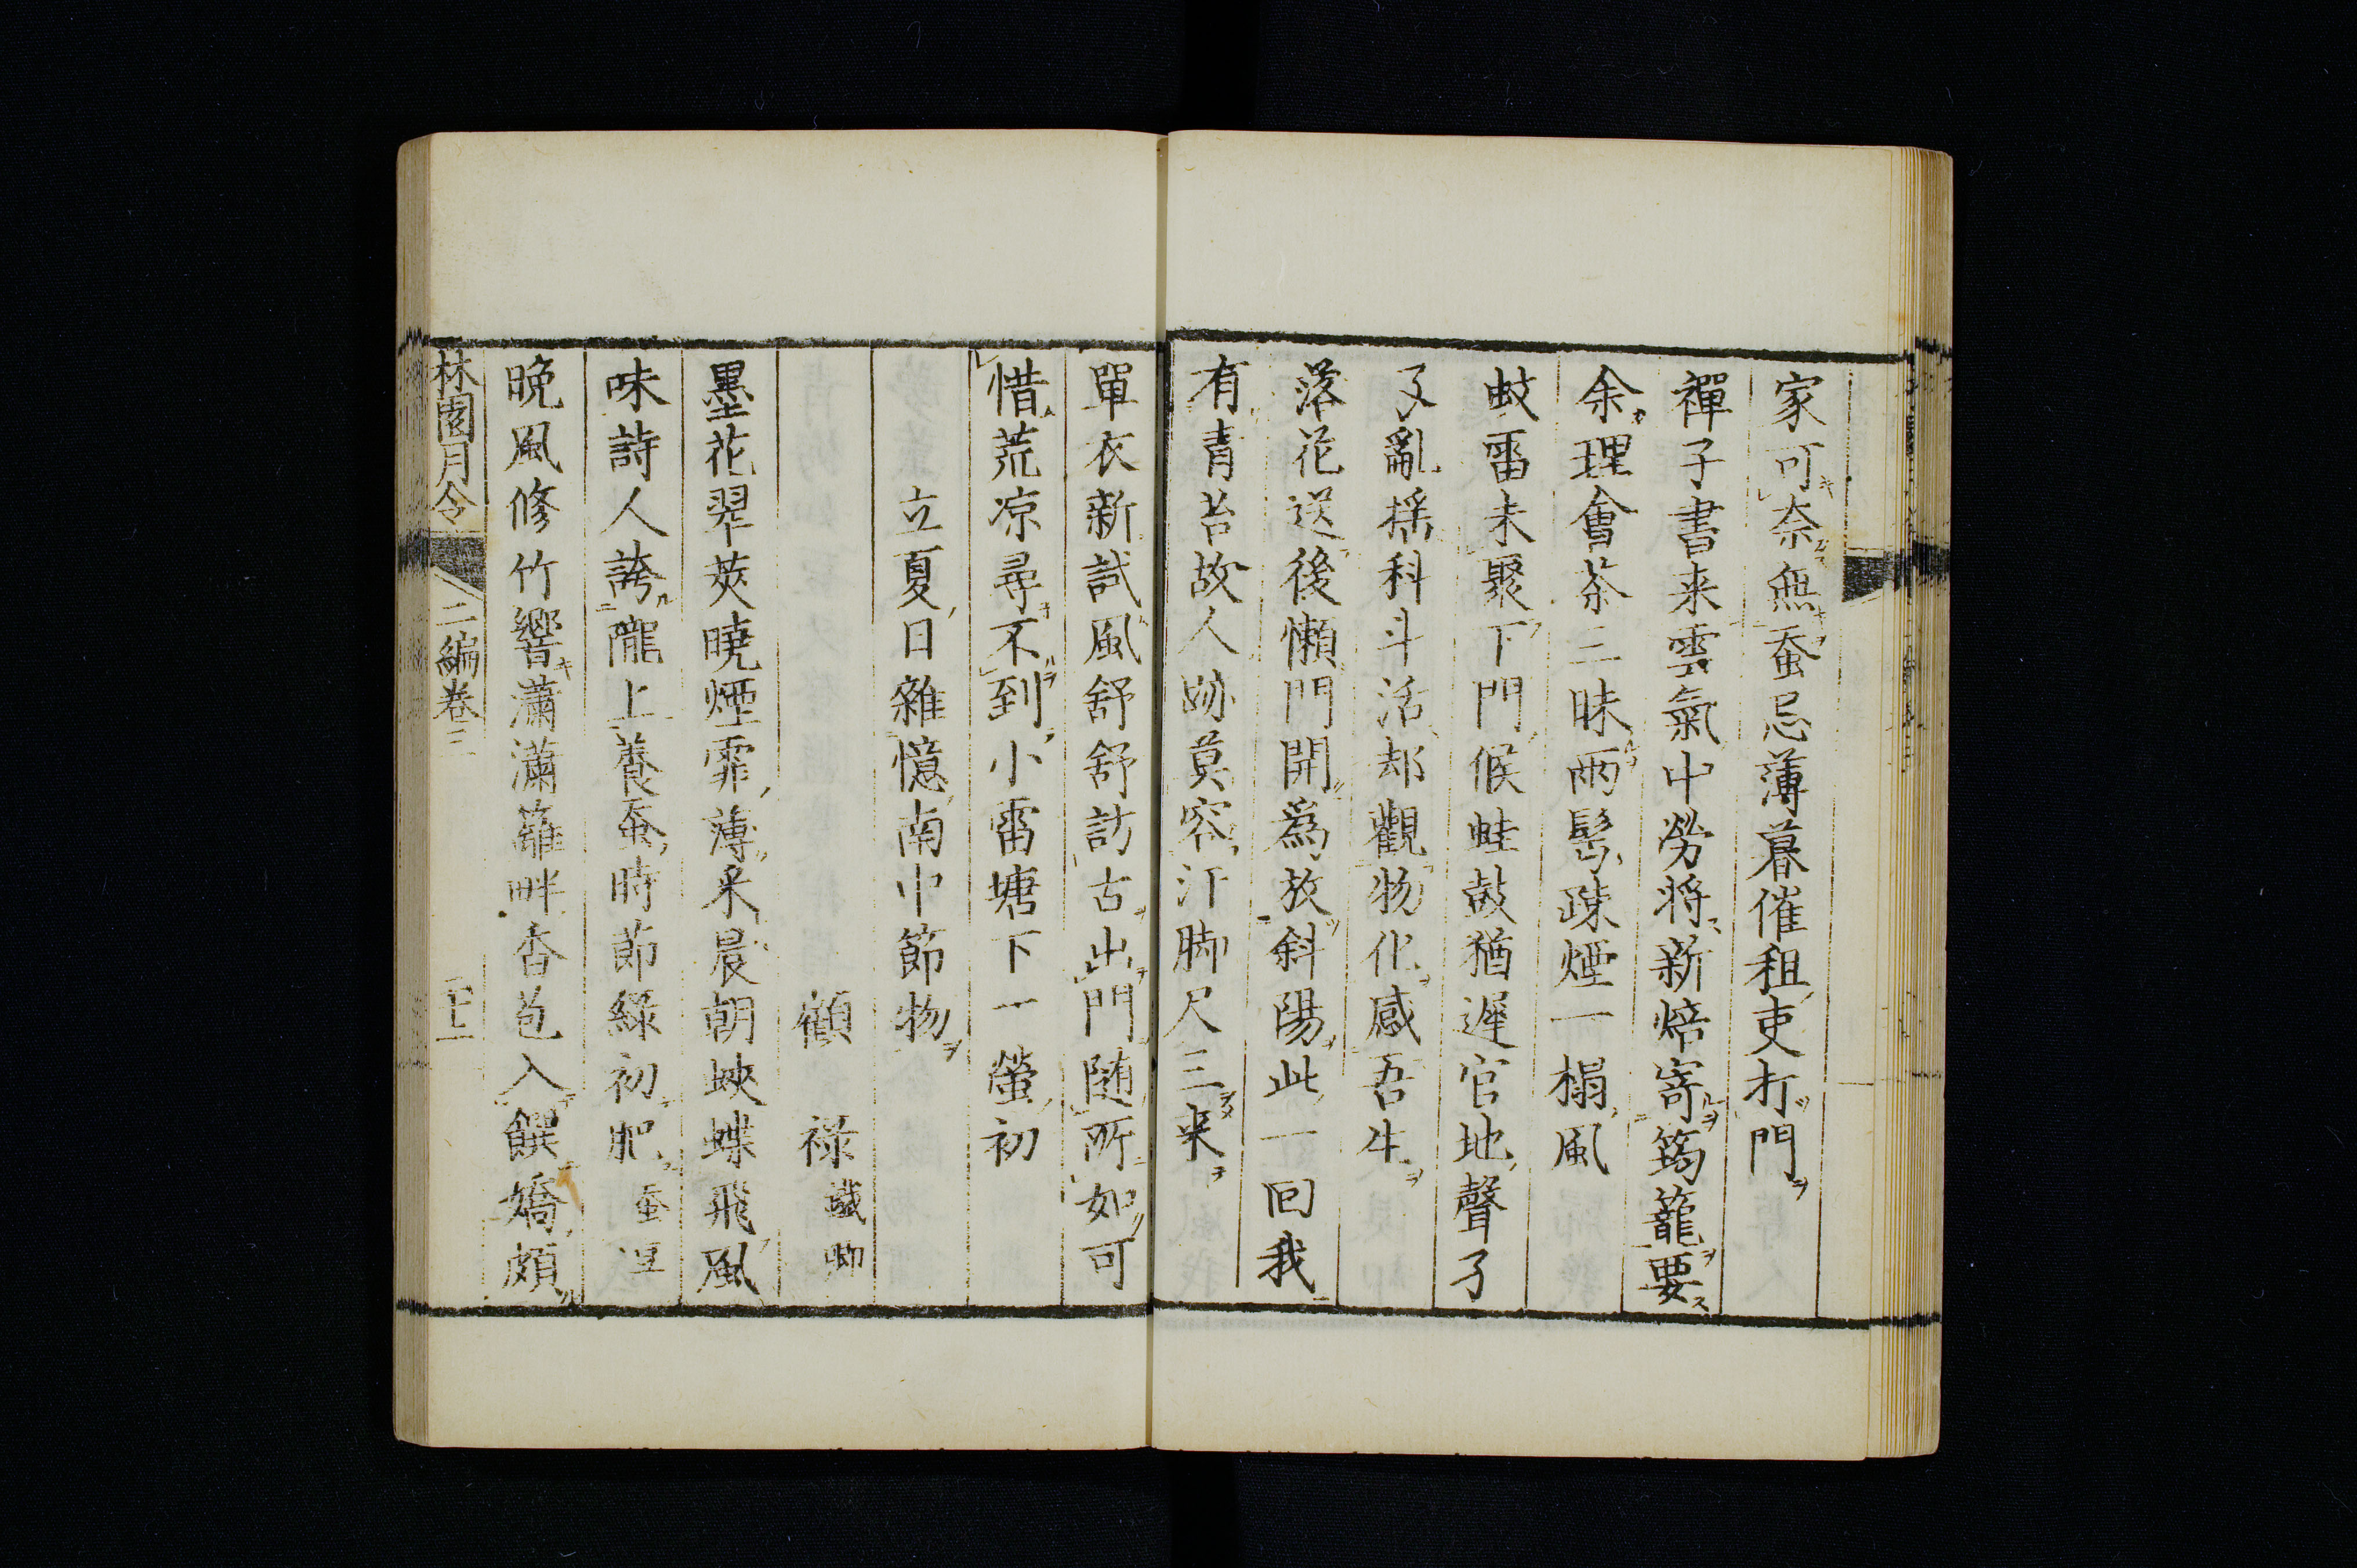 家可奈無蚕忌薄暮催租吏打門
禪子書来雲氣中勞将新焙寄筠籠要
余理會茶三昧兩髩疎煙一榻風
蚊雷未聚下門候蛙鼓猶遅官地聲了
了亂揺科斗活却觀物化感吾生
落花送後懶門開為放斜陽此一回我
有青苔故人跡莫容汗脚尺三来
單衣新試風舒舒訪古出門随所如可
惜荒凉尋不到小雷塘下一螢初
立夏日雜憶南中節物
顧禄 䥫卿
墨花翠莢曉煙霏薄采晨朝蛺蝶飛風
味詩人誇隴上養蚕時節緑初肥 蚕豆
晩風修竹響瀟瀟籬畔香苞入饌嬌頗
林園月令 二編巻三 二十二